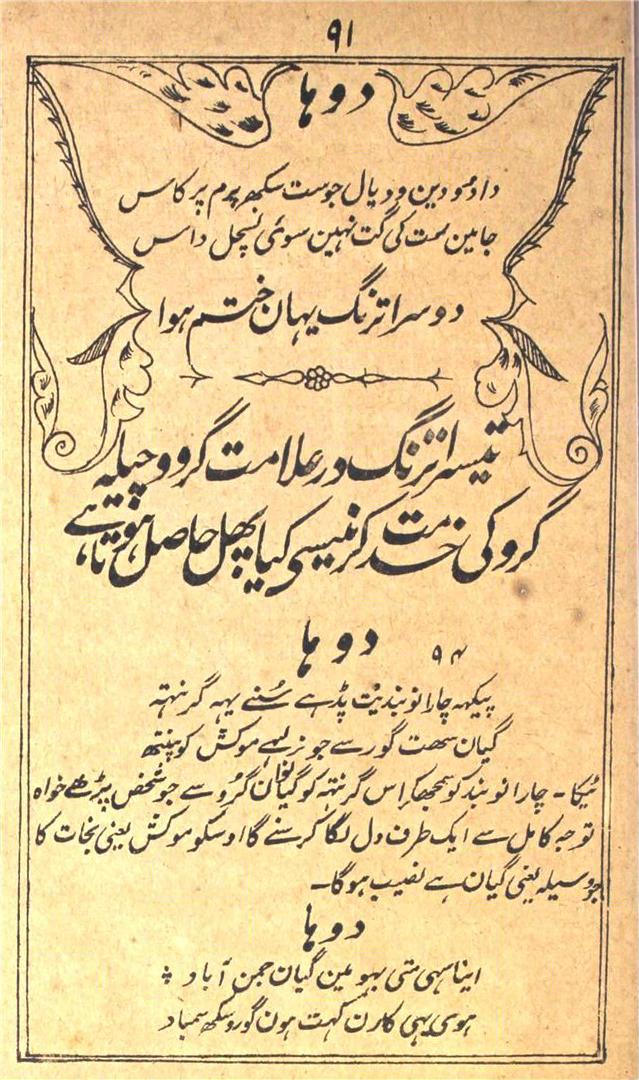 ۹۱
دوہا
دادو دین دیال جو ست سکھ پرم پرکاس
جا مین مت کی گت نہین سوئی نسچل داس
دوسرا ترنگ یہان ختم ہوا
تیسرا ترنگ در علامت گرو و چیلہ
گرو کی خدمت کرنیسی کیا پھل حاصل ہوتا ہے
دوہا ۹۴
پیکہہ چار انوبندیت پڈہے سُنے یہہ گرنتہہ
گیان سھت گور سے جو نر لہے موکش کو پنتھ
ٹیکا - چار انوبند کو سمجھکر اس گرنتہہ کو گیانوان گرو سے جو شخص پڑھے خواہ
توجہ کامل سے ایک طرف دل لگا کر سنے گا اوسکو موکش یعنی نجات کا
جو وسیلہ یعنی گیان ہے نصیب ہوگا۔
دوہا
متی بہو مین گیان آباد
ہوی یہی کارن کہت ہون گورو سکھ سمباد